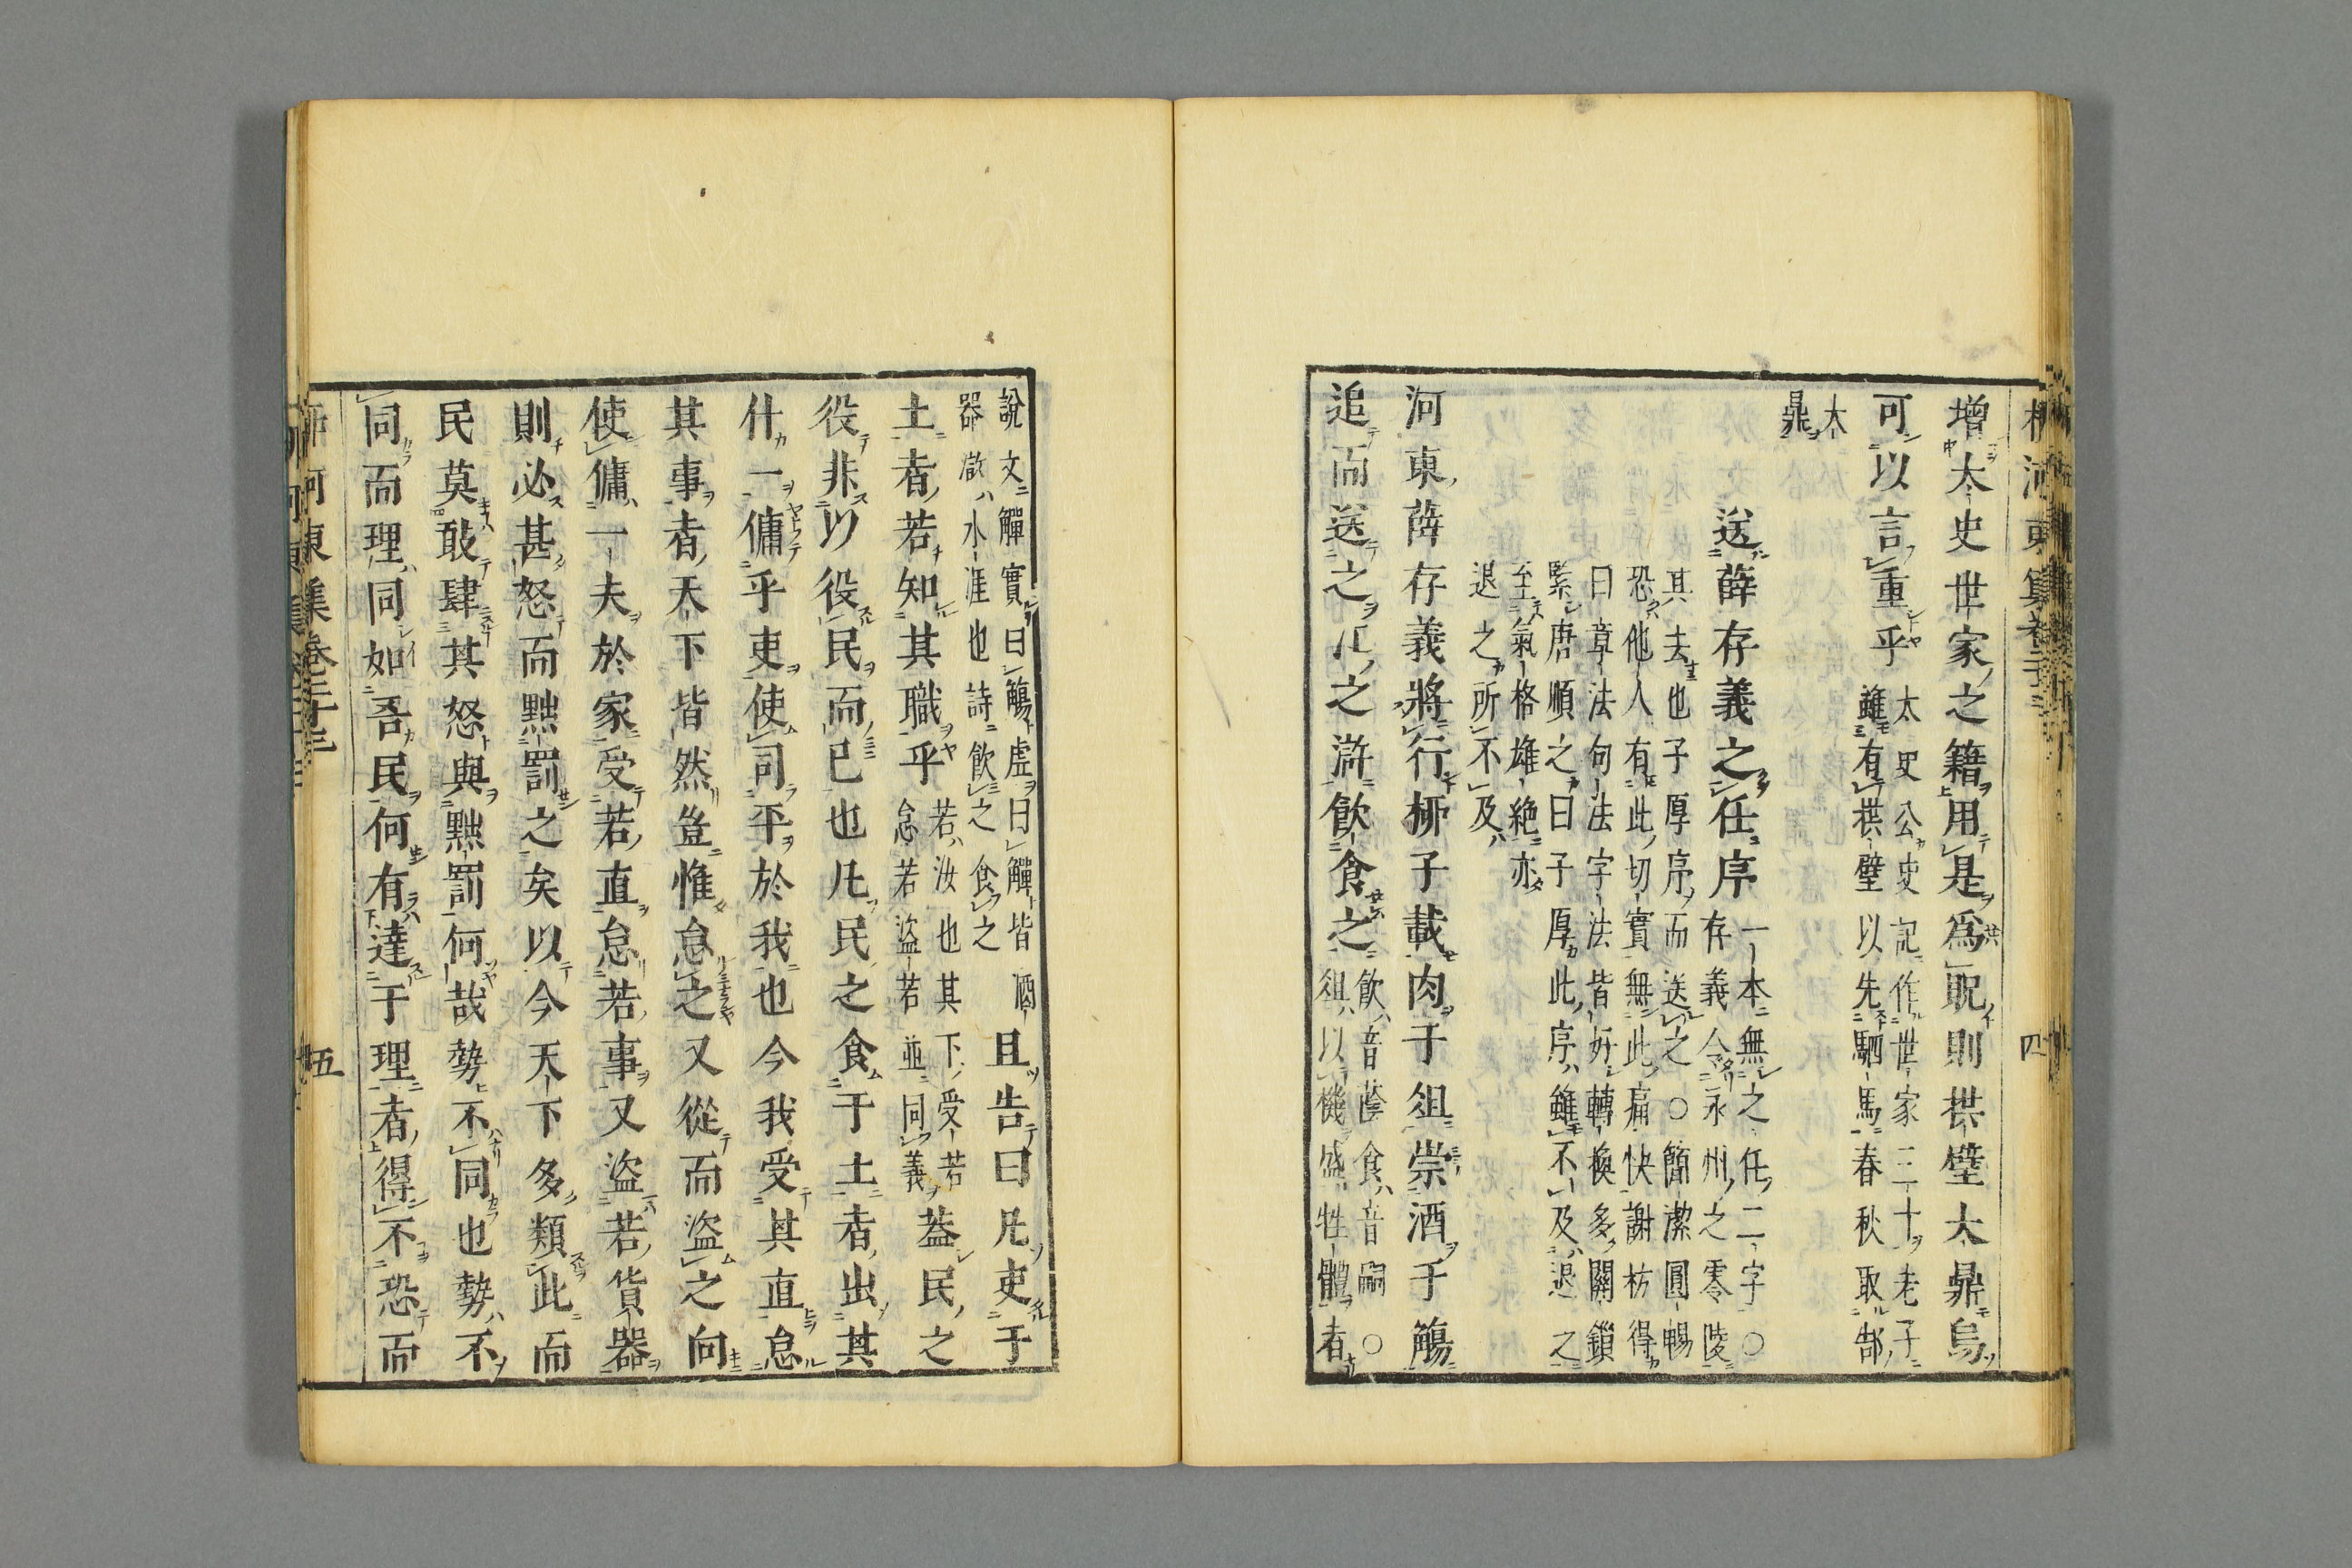 柳河東集卷二十三 四
增太史世家之籍用是爲貺則拱璧大鼎烏
可以言重乎
太史公史記作世家三十老子
雖有拱璧以先駟馬春秋取郜
大
鼎
送薛存義之任序
一本無之任二字〇
存義令永州之零陵
其去也子厚序而送之〇簡潔圓暢
恐他人有此切實無此痛快謝枋得
曰章法句法字法皆好轉換多關鎖
緊唐順之曰子厚此序雖不及退之
至氣格雄絶亦
退之所不及
河東薛存義將行柳子載肉于俎崇酒于觴
追而送之江之滸飲食之
飲音蔭食音嗣〇
俎以機盛牲體者
說文觶實曰觴虛曰觶皆酒
器滸水涯也詩飲之食之
且告曰凡吏于
土者若知其職乎
若汝也其下受若
怠若盜若並同義
葢民之
役非以役民而已也凡民之食于土者出其
什一傭乎吏使司平於我也今我受其直怠
其事者天下皆然豈惟怠之又從而盜之向
使傭一夫於家受若直怠若事又盜若貨器
則必甚怒而黜罰之矣以今天下多類此而
民莫敢肆其怒與黜罰何哉勢不同也勢不
同而理同如吾民何有達于理者得不恐而
柳河東集卷二十三 五